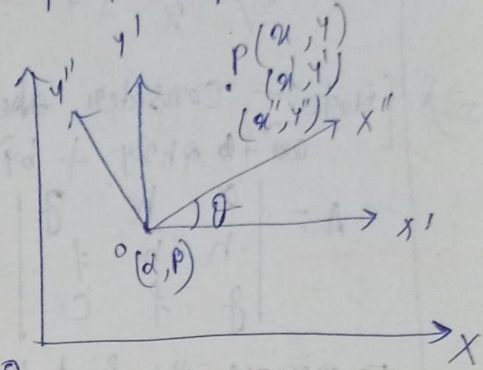 y'
y''
P(x, y)
(x', y')
(x'', y'')
x''
θ
x'
o(α, β)
X